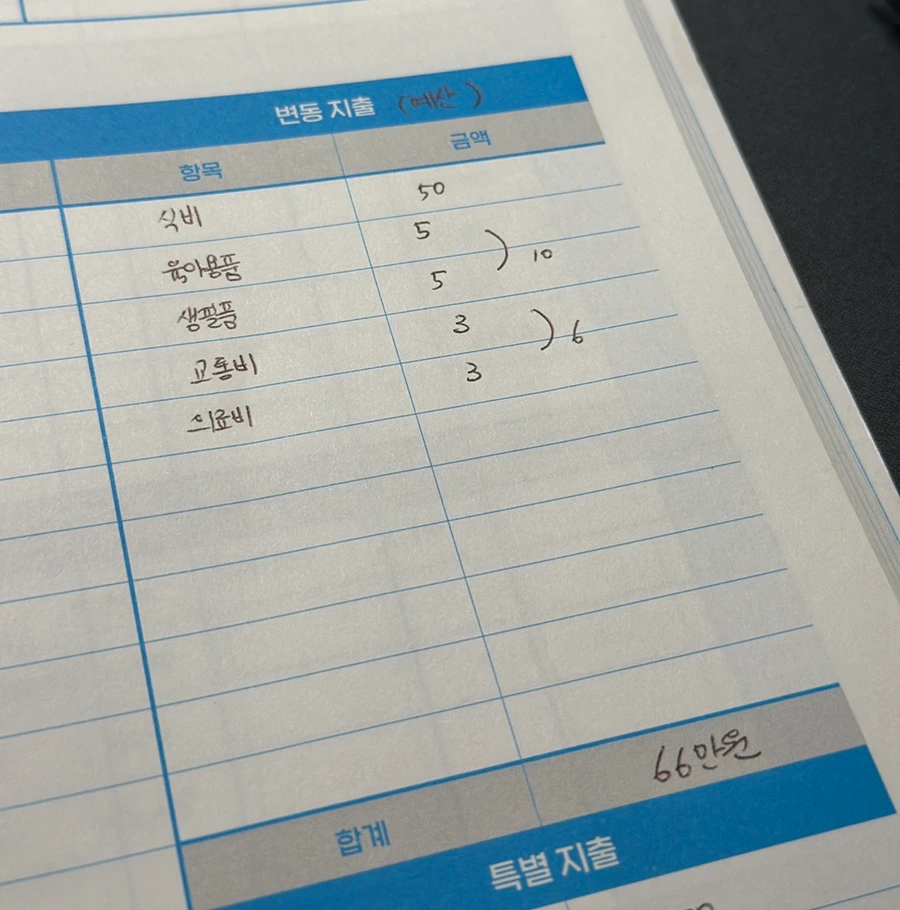 변동 지출 (예산)
항목 금액
식비 50
육아용품 5
생필품 5 ) 10
교통비 3
의료비 3 ) 6
합계 66만원
특별 지출